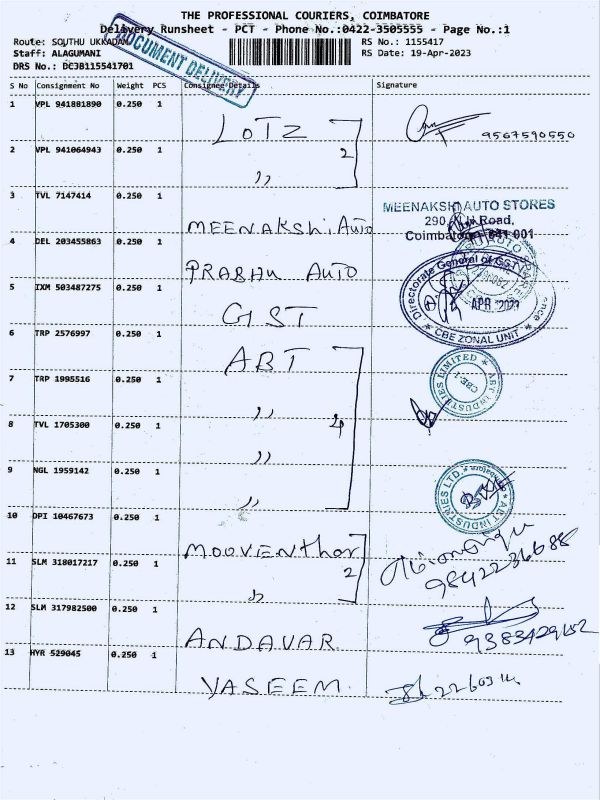 THE PROFESSIONAL COURIERS, COIMBATORE
Delivery Runsheet - PCT - Phone No.:0422-3505555 - Page No.:1
Route: SOUTHU UKKADAM
RS No.: 1155417
Staff: ALAGUMANI
RS Date: 19-Apr-2023
DRS No.: DCJB115541701
DOCUMENT DELIVERY
S No Consignment No Weight PCS Consignee Details Signature
1 VPL 941881890 0.250 1
LOTZ
9567590550
2
2 VPL 941064943 0.250 1
,,
3 TVL 7147414 0.250 1
MEENAKSHI AUTO STORES
MEENAKSHi. Auto
Road,
Coimbatore 641 001
4 DEL 203455863 0.250 1
PRABHU AUTO
Directorate General of GST
5 IXM 503487275 0.250 1
GIST
APR 2023
CBE ZONAL UNIT
6 TRP 2576997 0.250 1
ABT
ART INDUSTRIES LIMITED
CBE-1
7 TRP 1995516 0.250 1
,,
4
8 TVL 1705300 0.250 1
,,
9 NGL 1959142 0.250 1
,,
ART INDUSTRIES LTD.
10 DPI 10467673 0.250 1
MOOVENthar
11 SLM 318017217 0.250 1
2
,,
12 SLM 317982500 0.250 1
ANDAVAR
13 HYR 529045 0.250 1
YASEEM.